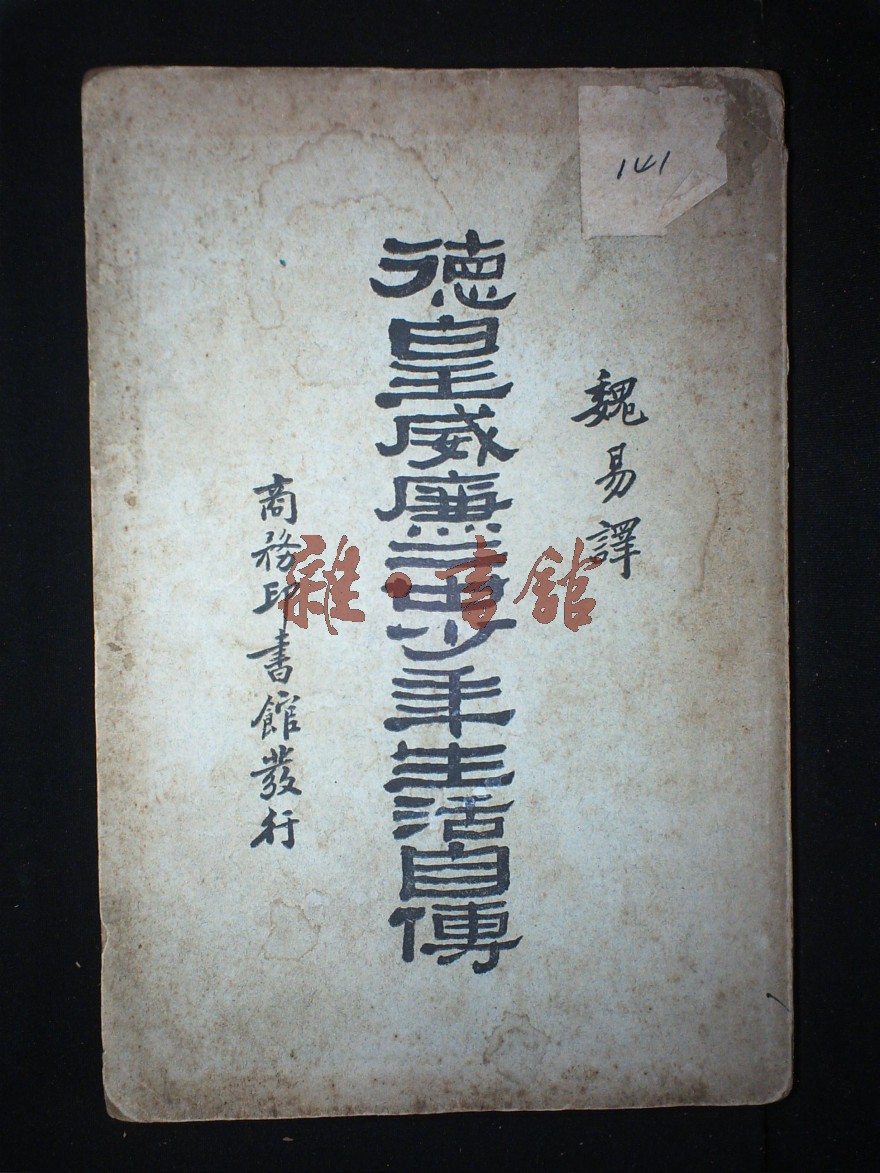 141
魏易譯
德皇威廉二世少年生活自傳
商務印書館發行
雜·書館